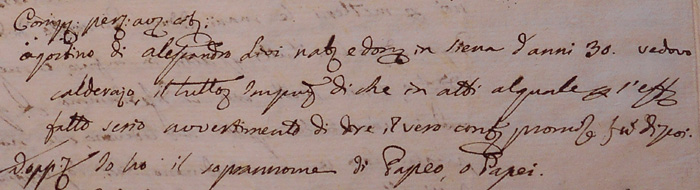 Comp: pers: avz: ct:
Agostino di Alessandro Livi natº e domº in Siena d'anni 30. vedovo
calderajo, il tuttoº Impuº di che in atti al quale l'eff
fatto serio avvertimento di dire il vero contº promº
Doppº Io ho il soprannome di Papeo, o Papei.